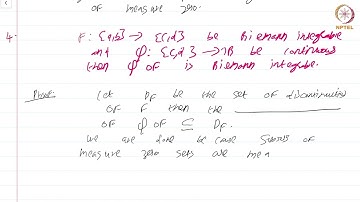 of measure zero.
NPTEL
4. F: [a,b] → [c,d] be Riemann integrable
and φ: [c,d] → ℝ be continuous
then φ of is Riemann integrable.
Proof: Let DF be the set of discontinuities
of F then the
of φ of ⊆ DF.
We are done because subsets of
measure zero sets are mea